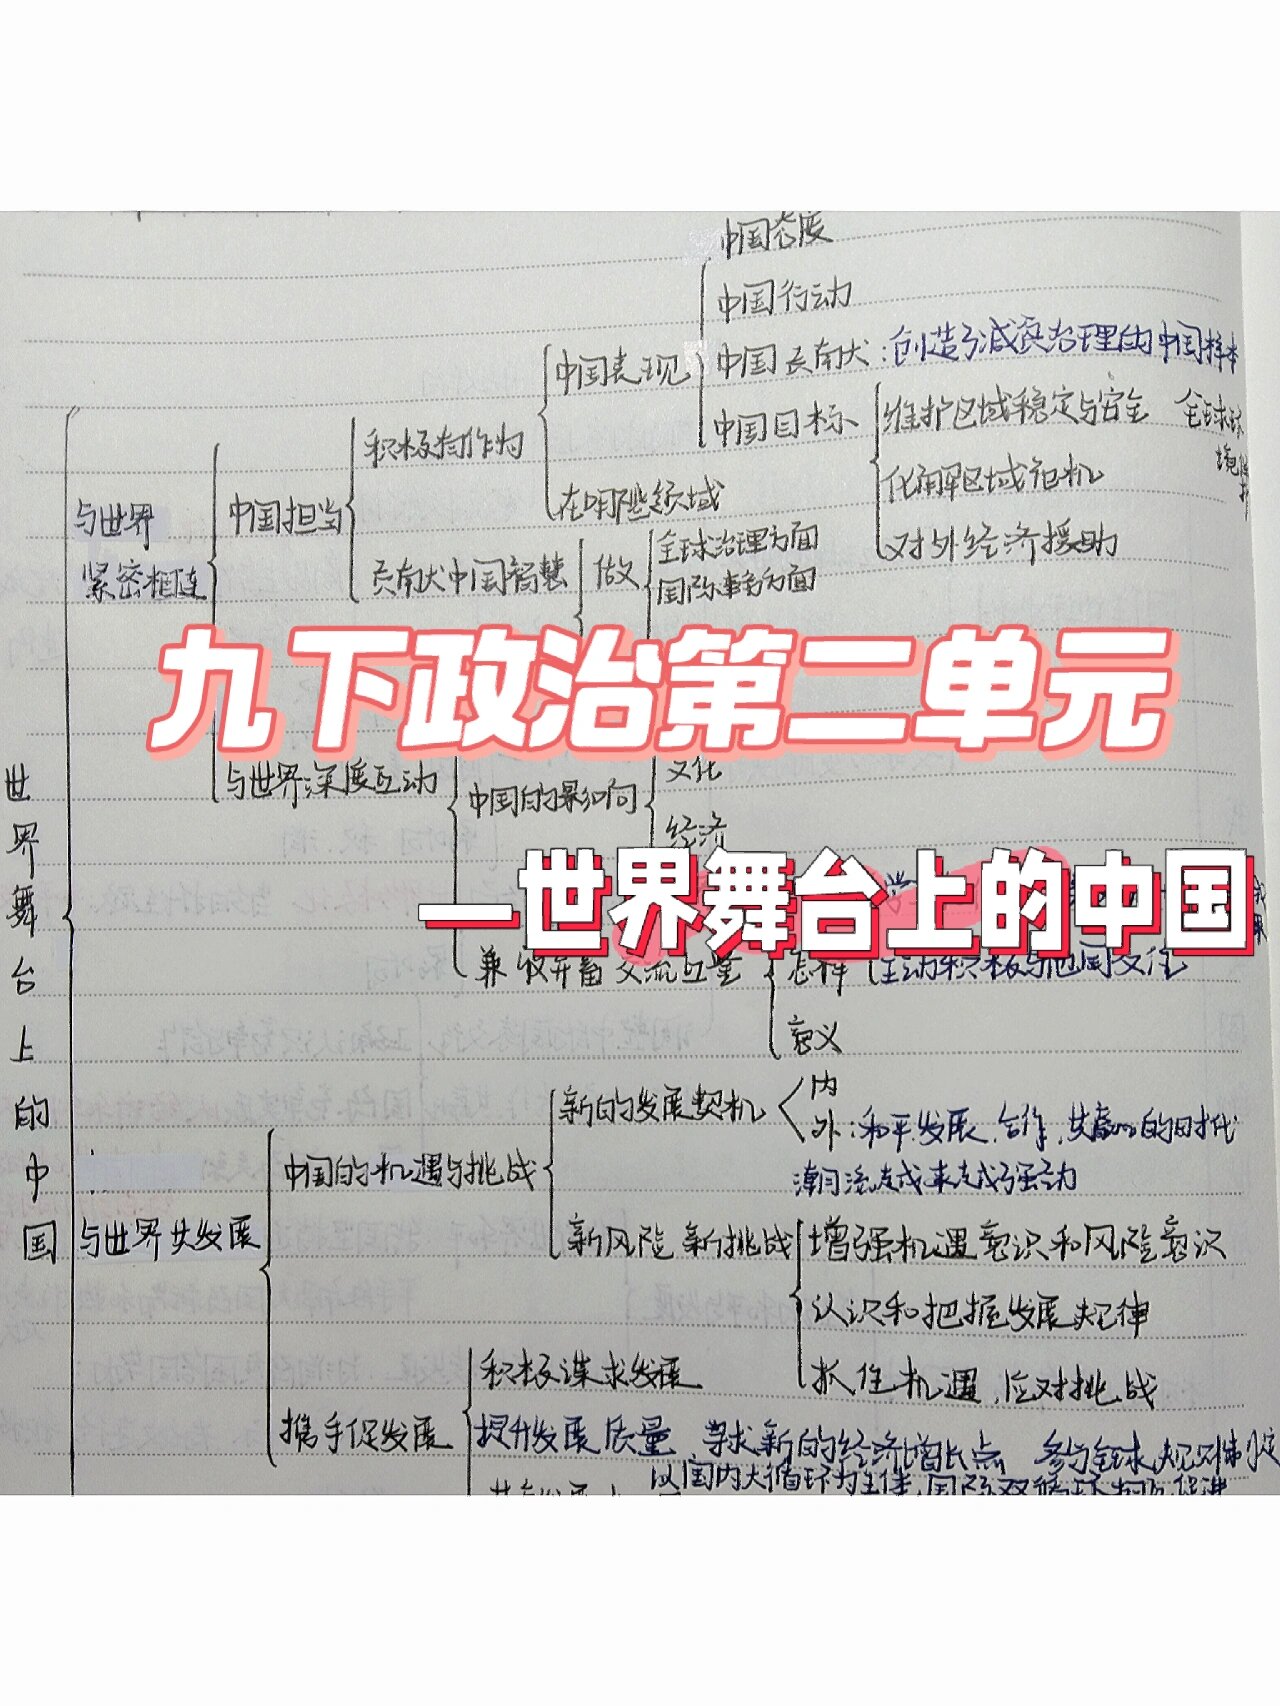 中国态度
中国行动
中国表现
中国贡献：创造了减贫治理的中国样本
中国目标
维护区域稳定与安全
全球环
境
积极有作为
化解区域危机
与世界
紧密相连
中国担当
在哪些领域
对外经济援助
贡献中国智慧
做
全球治理方面
国际事务方面
九下政治第二单元
与世界深度互动
中国的影响
文化
经济
—世界舞台上的中国
兼收并蓄 交流互鉴
怎样
主动积极与他国文化
意义
世界舞台上的中国
新的发展契机
内
外：和平、发展、合作、共赢的时代
潮流越来越强劲
中国的机遇与挑战
与世界共发展
新风险 新挑战
增强机遇意识和风险意识
认识和把握发展规律
抓住机遇、应对挑战
积极谋求发展
携手促发展
提升发展质量 寻求新的经济增长点 参与全球规则制定
以国内大循环为主体、国际双循环